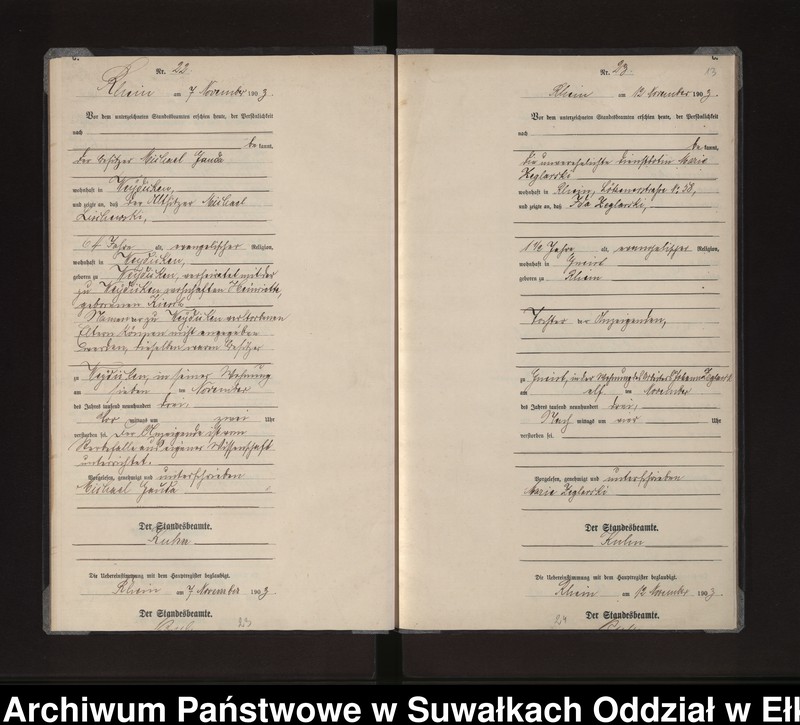 C.
Nr. 22.
Rhein am 7 November 1903.
Vor dem unterzeichneten Standesbeamten erschien heute, der Persönlichkeit
nach
be kannt,
der Besitzer Michael Ganda
wohnhaft in Weydicken,
und zeigte an, daß der Altsitzer Michael
64 Jahre alt, evangelischer Religion,
wohnhaft in Weydicken,
geboren zu Weydicken, verheiratet mit der
zu Weydicken verstorbenen Henriette,
geborenen
Namen der zu Weydicken verstorbenen
Eltern können nicht angegeben
werden, dieselben waren Besitzer
zu Weydicken, in seiner Wohnung
am sieben ten November
des Jahres tausend neunhundert drei,
Vor mittags um zwei Uhr
verstorben sei. Der Anzeigende ist vom
Sterbefalle aus eigener Wissenschaft
unterrichtet.
Vorgelesen, genehmigt und unterschrieben
Michael Ganda
Der Standesbeamte.
Kuhn
Die Uebereinstimmung mit dem Hauptregister beglaubigt.
Rhein am 7 November 1903
Der Standesbeamte.
Kuhn
C.
13
Nr. 23.
Rhein am 12 November 1903.
Vor dem unterzeichneten Standesbeamten erschien heute, der Persönlichkeit
nach
be kannt,
die unverehelichte Dienstbotin Marie
Zeglarski
wohnhaft in Rhein, Lötzenerstraße No 58,
und zeigte an, daß Ida Zeglarski,
Jahre alt, evangelischer Religion,
wohnhaft in Gneist
geboren zu Rhein
Tochter der Anzeigenden,
zu Gneist, in der Wohnung des Arbeiters Johann Zeglarski
am elf ten November
des Jahres tausend neunhundert drei,
Nach mittags um vier Uhr
verstorben sei.
Vorgelesen, genehmigt und unterschrieben
Marie Zeglarski
Der Standesbeamte.
Kuhn
Die Uebereinstimmung mit dem Hauptregister beglaubigt.
Rhein am 12 November 1903.
Der Standesbeamte.
Kuhn
Archiwum Państwowe w Suwałkach Oddział w Eł